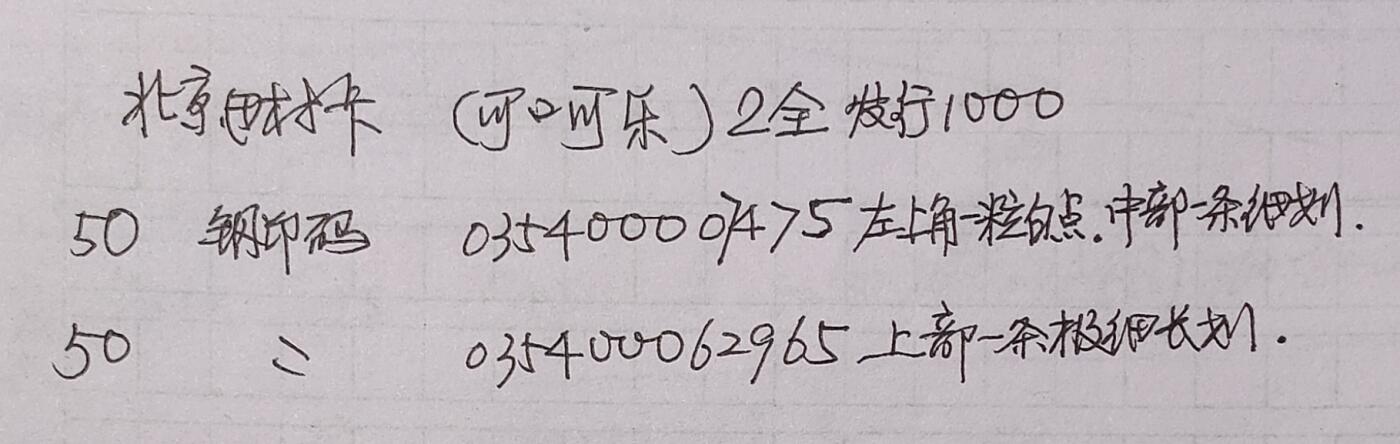 北京田村卡 (可口可乐) 2全 发行1000
50 钢印码 035400007475 左上角一粒白点.中部一条细划.
50 〃 035400062965 上部一条极细长划.